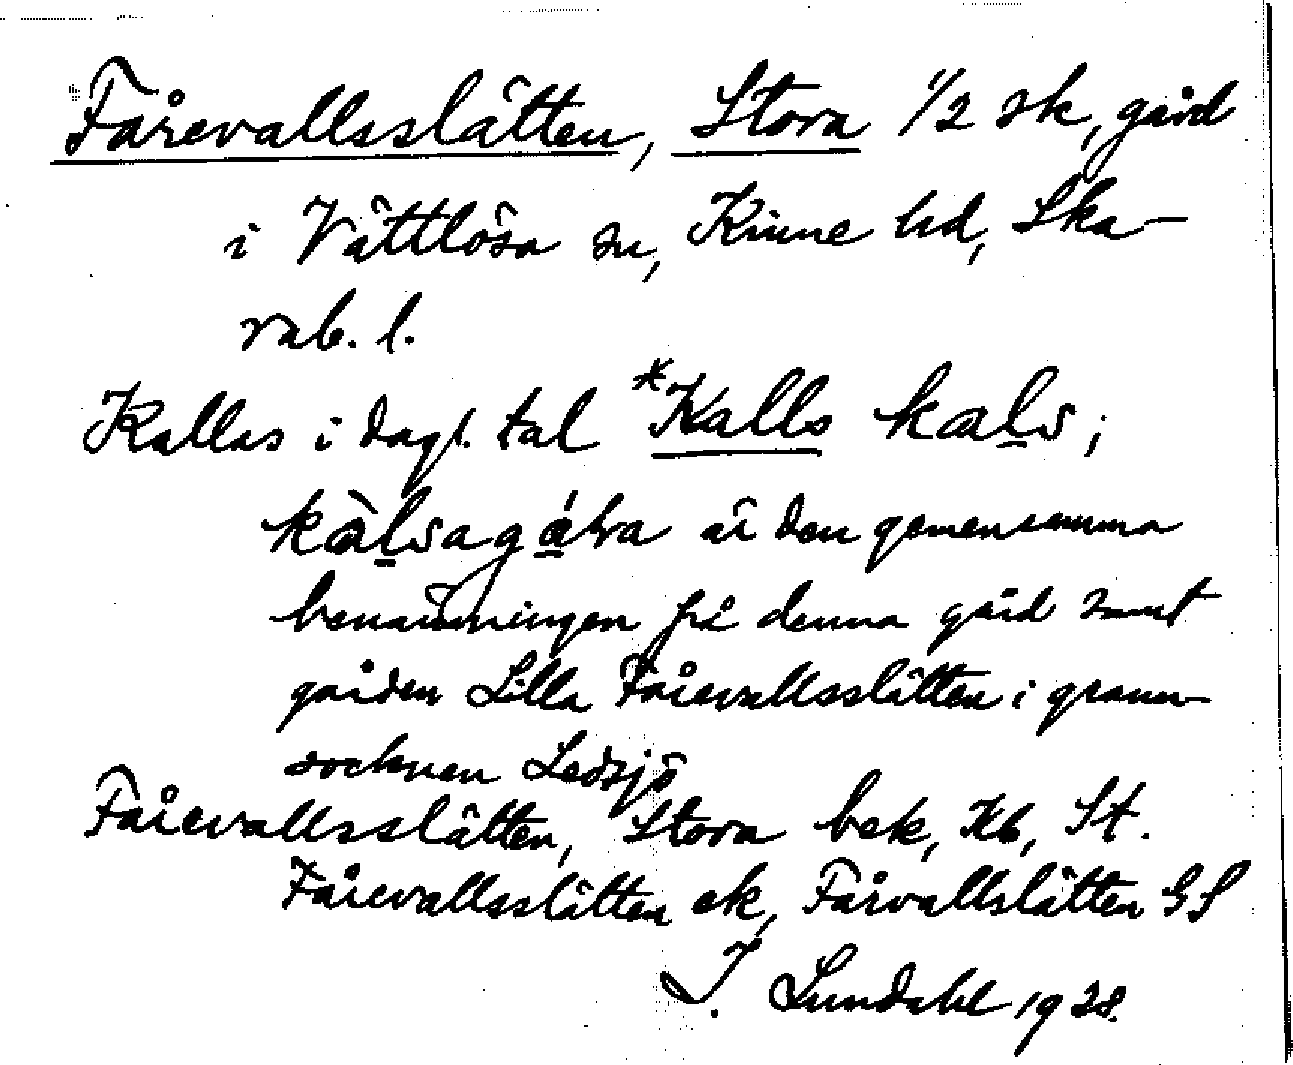 Fårevallsslätten, Stora 1/2 sk, gård
i Vättlösa sn, Kinne hd, Ska-
rab. l.
Kallas i dagl. tal *Kalls kals;
kàlsagáɫra är den gemensamma
benämningen på denna gård samt
gården Lilla Fårevallsslätten i grann-
socknen Ledsjö
Fårevallsslätten, Stora bek, Kb, St.
Fårevallsslätten ek, Fårvallslätten GS
I. Lundahl 1928.